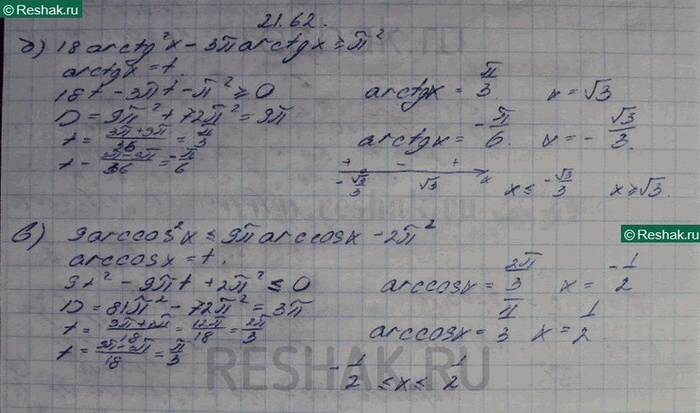 Reshak.ru
21.62.
б) 18arctg²x - 3π arctgx ≥ π²
arctgx = t.
18t - 3πt - π² ≥ 0
D = 9π² + 72π² = 9π
t = (3π+9π)/36 = π/3
t = (3π-9π)/36 = -π/6
arctgx = π/3 x = √3
arctgx = -π/6. x = -√3/3.
+ - +
-√3/3 √3 x
x ≤ -√3/3 x ≥ √3.
в) 9arccos²x ≤ 9π arccosx - 2π²
arccosx = t.
9t² - 9πt + 2π² ≤ 0
D = 81π² - 72π² = 3π
t = (9π+3π)/18 = 12π/18 = 2π/3
t = (9π-3π)/18 = π/3
Reshak.ru
arccosx = 2π/3 x = -1/2
arccosx = π/3 x = 1/2
-1/2 ≤ x ≤ 1/2
RESHAK.RU